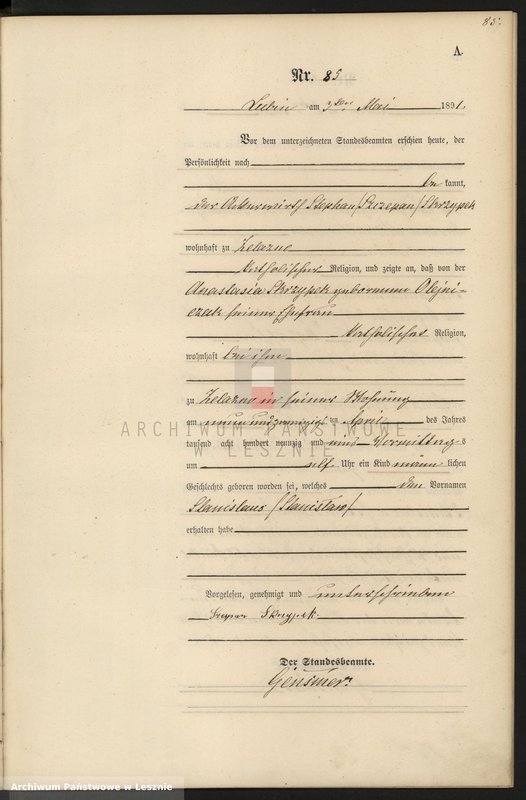 85.
A.
Nr. 85
Lubin am 3ten Mai 1891.
Vor dem unterzeichneten Standesbeamten erschien heute, der
Persönlichkeit nach
be kannt,
der Ackerwirth Stephan /Szczepan/ Skrzypek
wohnhaft zu Zelazno
katholischer Religion, und zeigte an, daß von der
Anastasia Skrzypek geborenen Olejni-
czak seiner Ehefrau
katholischer Religion,
wohnhaft bei ihm
zu Zelazno in seiner Wohnung
am neunundzwanzigsten April des Jahres
tausend acht hundert neunzig und eins Vormittags
um elf Uhr ein Kind männ lichen
Geschlechts geboren worden sei, welches den Vornamen
Stanislaus /Stanisław/
erhalten habe
Vorgelesen, genehmigt und unterschrieben
Skrzypek.
Der Standesbeamte.
ARCHIWUM PAŃSTWOWE
W LESZNIE
Archiwum Państwowe w Lesznie